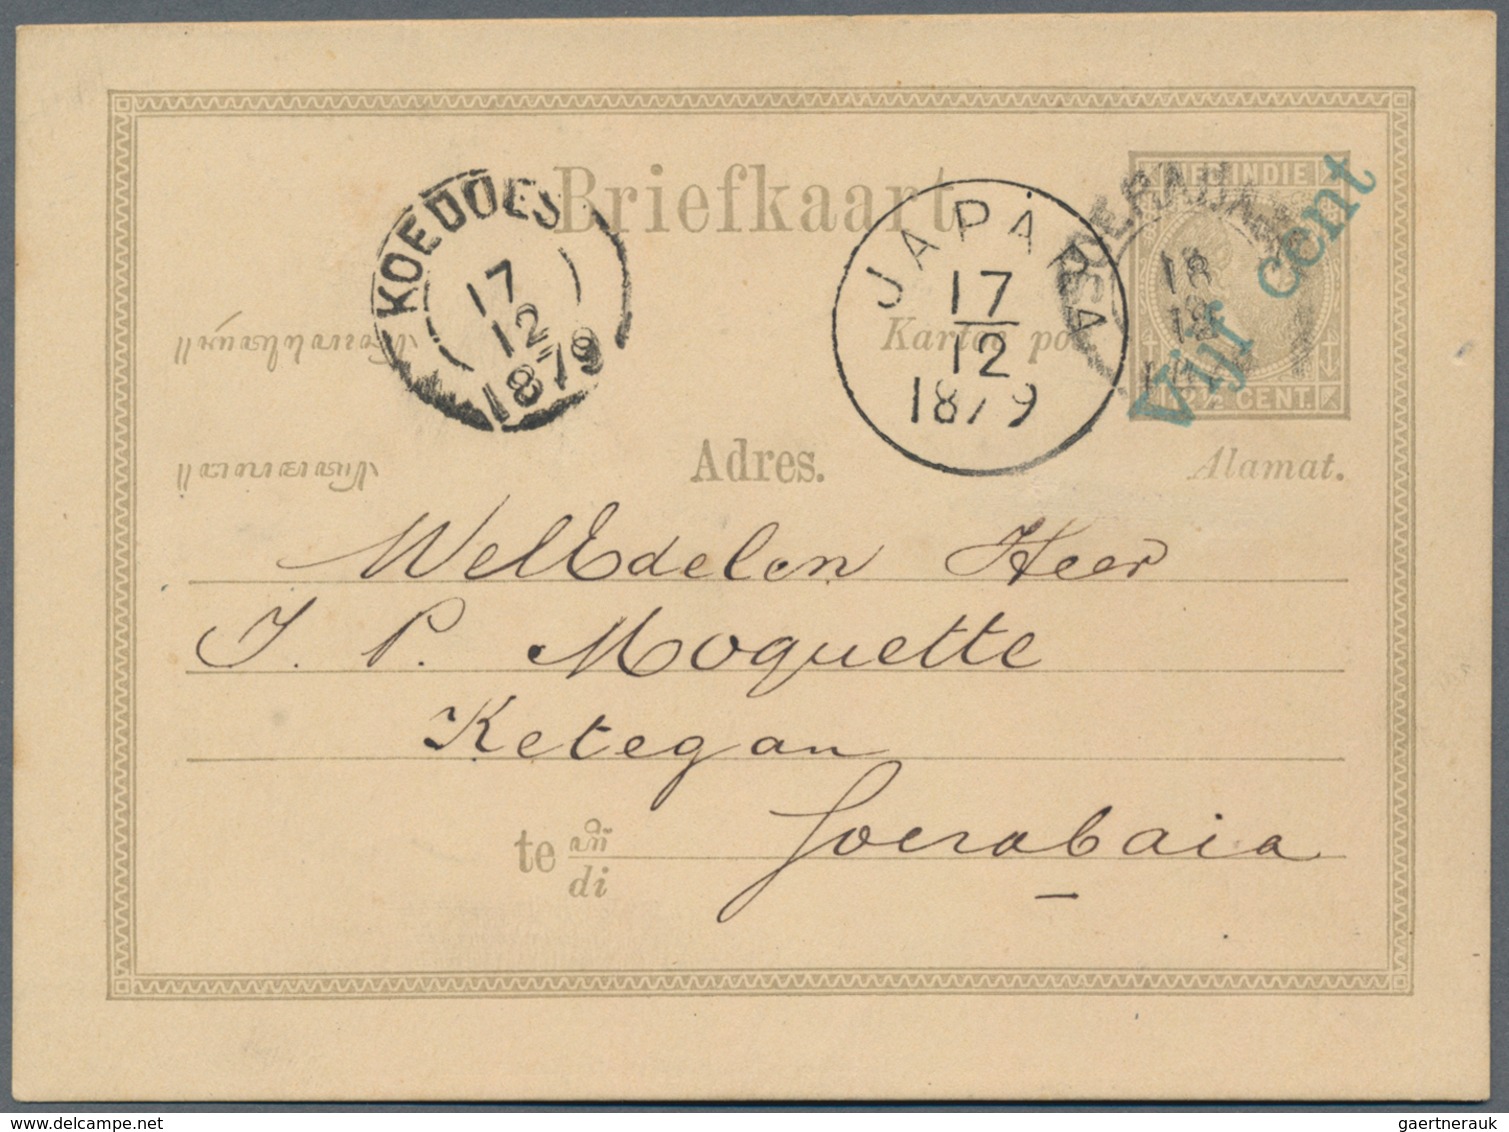 Briefkaart
NED. INDIE
KOEDOES
17
12
1879
JAPARA
17
12
1879
SOERABAIJA
18
12
Vijf cent
Kartoe pos
12½ CENT.
Adres.
Alamat.
WelEdelen Heer
J. P. Moquette
Ketegan
te
di
Soerabaia
gaertnerauk @ delcampe.net